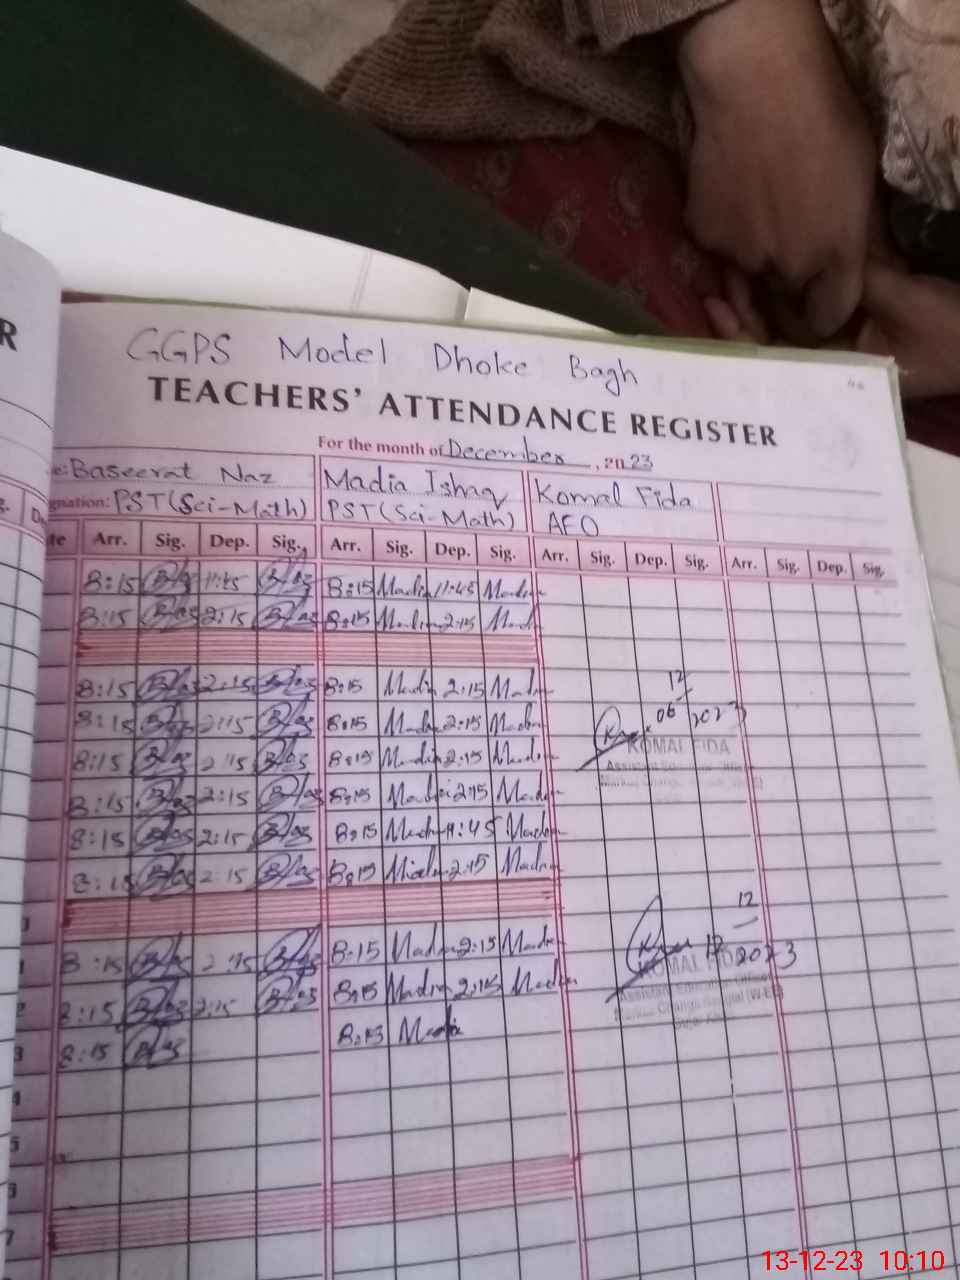 R
GGPS Model Dhoke Bagh
TEACHERS' ATTENDANCE REGISTER
For the month of December, 2023
e: Baseerat Naz Madia Ishaq Komal Fida
gnation: PST (Sci-Math) PST (Sci-Math) AEO
te Arr. Sig. Dep. Sig. Arr. Sig. Dep. Sig. Arr. Sig. Dep. Sig. Arr. Sig. Dep. Sig.
8:15 11:45 8:15 Madia 11:45 Madia
8:15 2:15 8:15 Madia 2:15 Madia
8:15 2:15 8:15 Madia 2:15 Madia 12
8:15 2:15 8:15 Madia 2:15 Madia 06 2023
8:15 2:15 8:15 Madia 2:15 Madia KOMAL FIDA
8:15 2:15 8:15 Madia 2:15 Madia
8:15 2:15 8:15 Madia 11:45 Madia
8:15 2:15 8:15 Madia 2:15 Madia
12
8:15 2:15 8:15 Madia 2:15 Madia 12 2023
KOMAL FIDA
8:15 2:15 8:15 Madia 2:15 Madia Assistant Education Officer
3 8:15 8:15 Madia
4
5
13-12-23 10:10